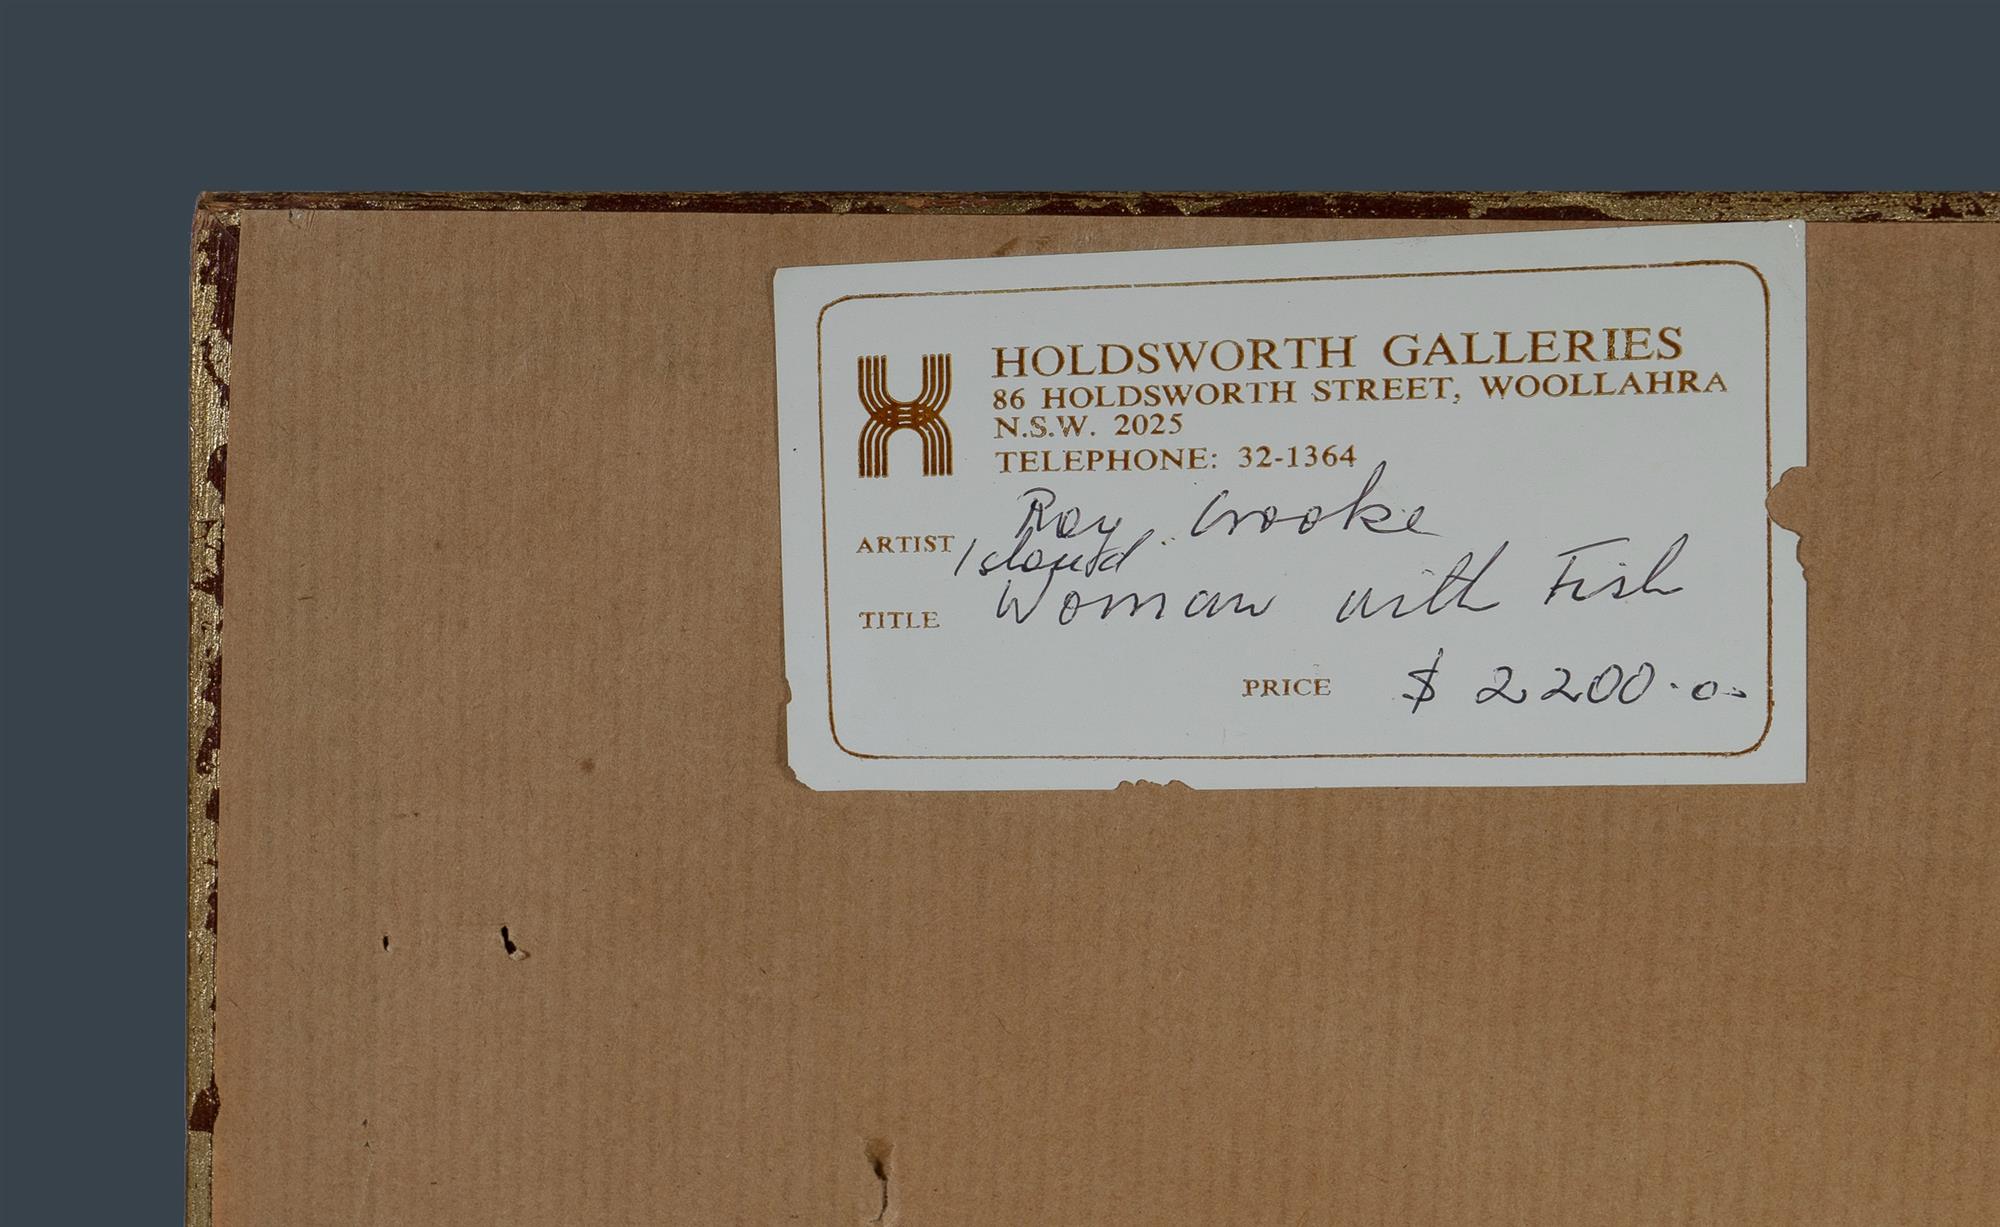 HOLDSWORTH GALLERIES
86 HOLDSWORTH STREET, WOOLLAHRA
N.S.W. 2025
TELEPHONE: 32-1364
ARTIST Ray Crooke
Island
TITLE Woman with Fish
PRICE $ 2200.00